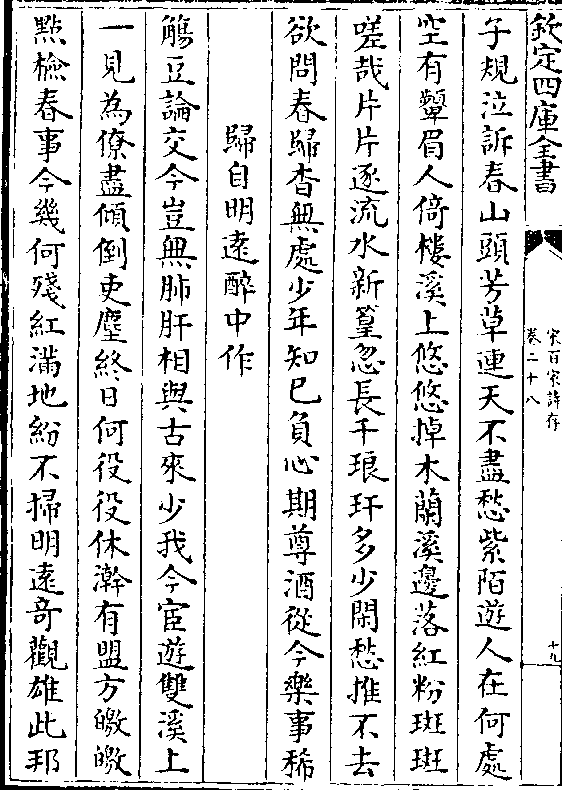 欽定四庫全書
宋百家詩存
卷二十八
十九
子規泣訴春山頭芳草連天不盡愁紫陌遊人在何處
空有顰眉人倚樓溪上悠悠掉木蘭溪邊落紅粉斑斑
嗟哉片片逐流水新篁忽長千琅玕多少閒愁推不去
欲問春歸杳無處少年知已負心期尊酒從今樂事稀
歸自明遠醉中作
觴豆論交今豈無肺肝相與古來少我今宦遊雙溪上
一見為僚盡傾倒吏塵終日何役役休澣有盟方皦皦
點檢春事今幾何殘紅滿地紛不掃明遠竒觀雄此邦